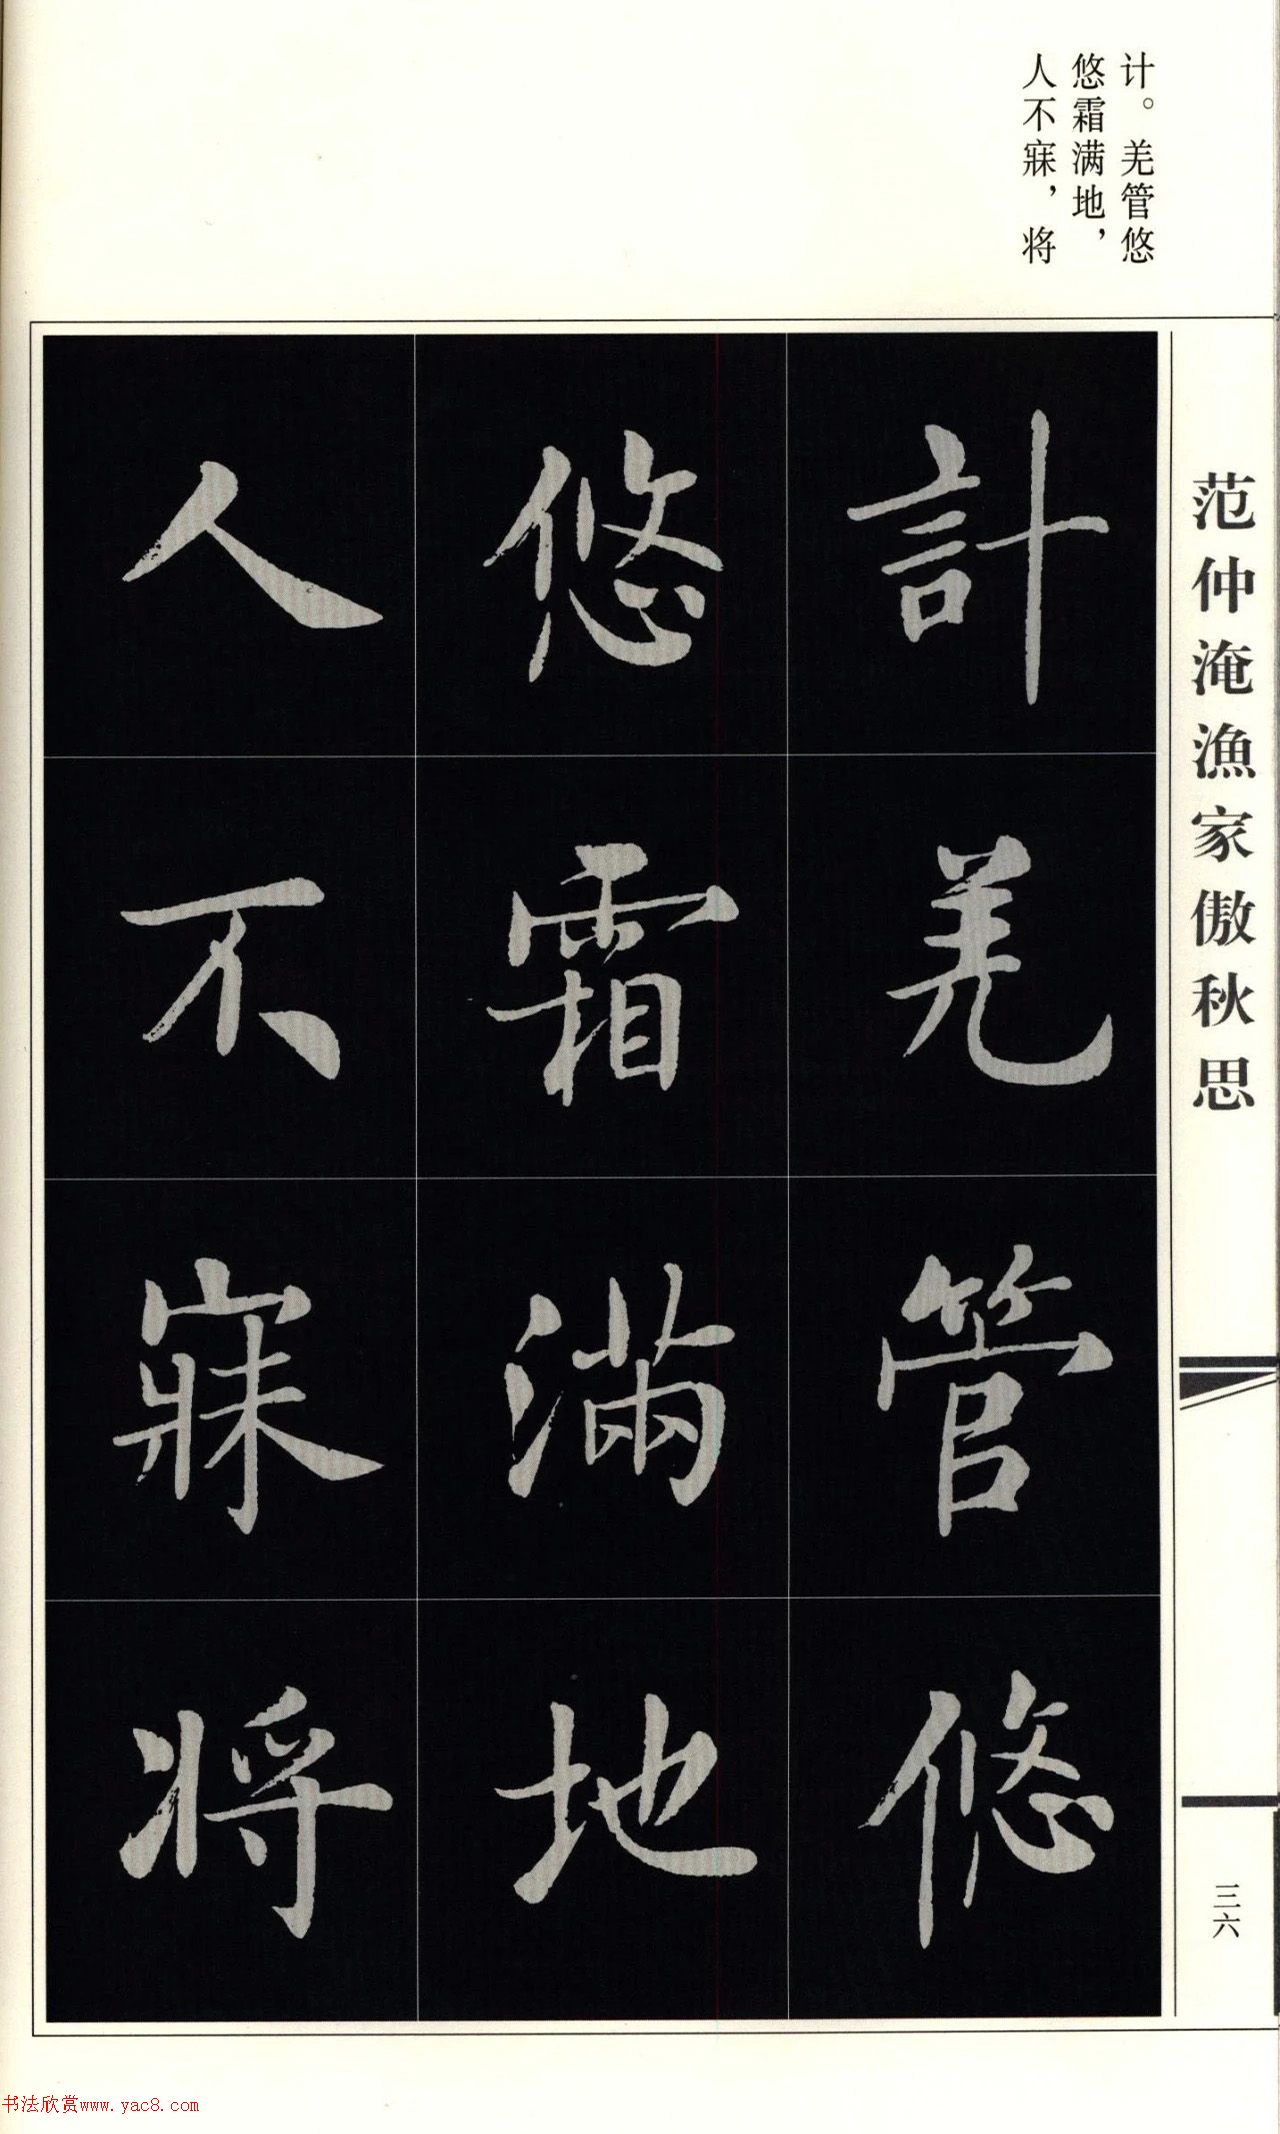 计。羌管悠
悠霜满地，
人不寐，将
范仲淹漁家傲秋思
計羌管悠
悠霜滿地
人不寐將
三六
书法欣赏www.yac8.com